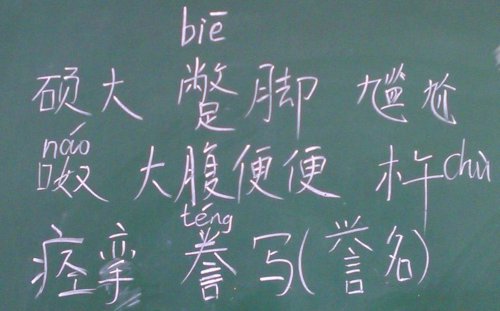 biē
硕大 蹩脚 尴尬
náo
呶 大腹便便 杵chǔ
téng
痉挛 誊写(誉名)